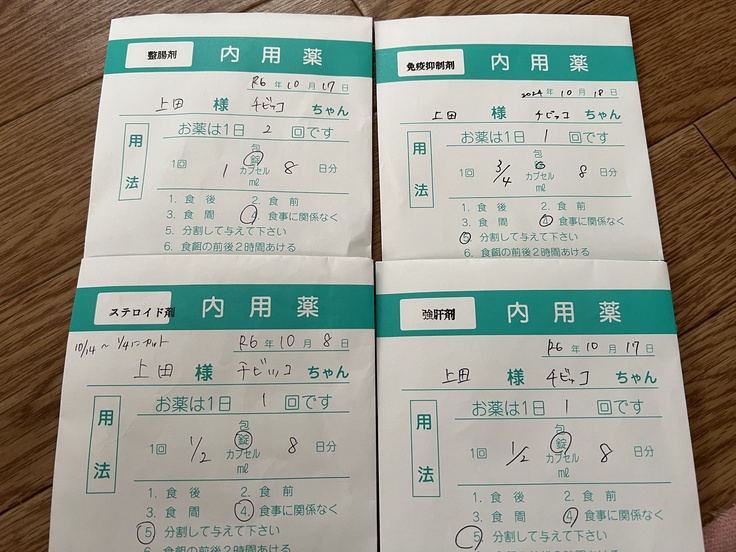 整腸剤 内用薬
R6年10月17日
上田 様 チビッコ ちゃん
お薬は1日 2 回です
用法
包
1回 1 錠 8 日分
カプセル
ml
1. 食後 2. 食前
3. 食間 4. 食事に関係なく
5. 分割して与えて下さい
6. 食餌の前後2時間あける
免疫抑制剤 内用薬
2024年10月18日
上田 様 チビッコ ちゃん
お薬は1日 1 回です
用法
包
1回 3/4 カプセル 8 日分
ml
1. 食後 2. 食前
3. 食間 4. 食事に関係なく
5. 分割して与えて下さい
6. 食餌の前後2時間あける
ステロイド剤 内用薬
10/14〜 1/4にカット R6年10月8日
上田 様 チビッコ ちゃん
お薬は1日 1 回です
用法
包
1回 1/2 錠 8 日分
カプセル
ml
1. 食後 2. 食前
3. 食間 4. 食事に関係なく
5 分割して与えて下さい
6. 食餌の前後2時間あける
強肝剤 内用薬
R6年10月17日
上田 様 チビッコ ちゃん
お薬は1日 1 回です
用法
包
1回 1/2 錠 8 日分
カプセル
ml
1. 食後 2. 食前
3. 食間 4. 食事に関係なく
5 分割して与えて下さい
6. 食餌の前後2時間あける